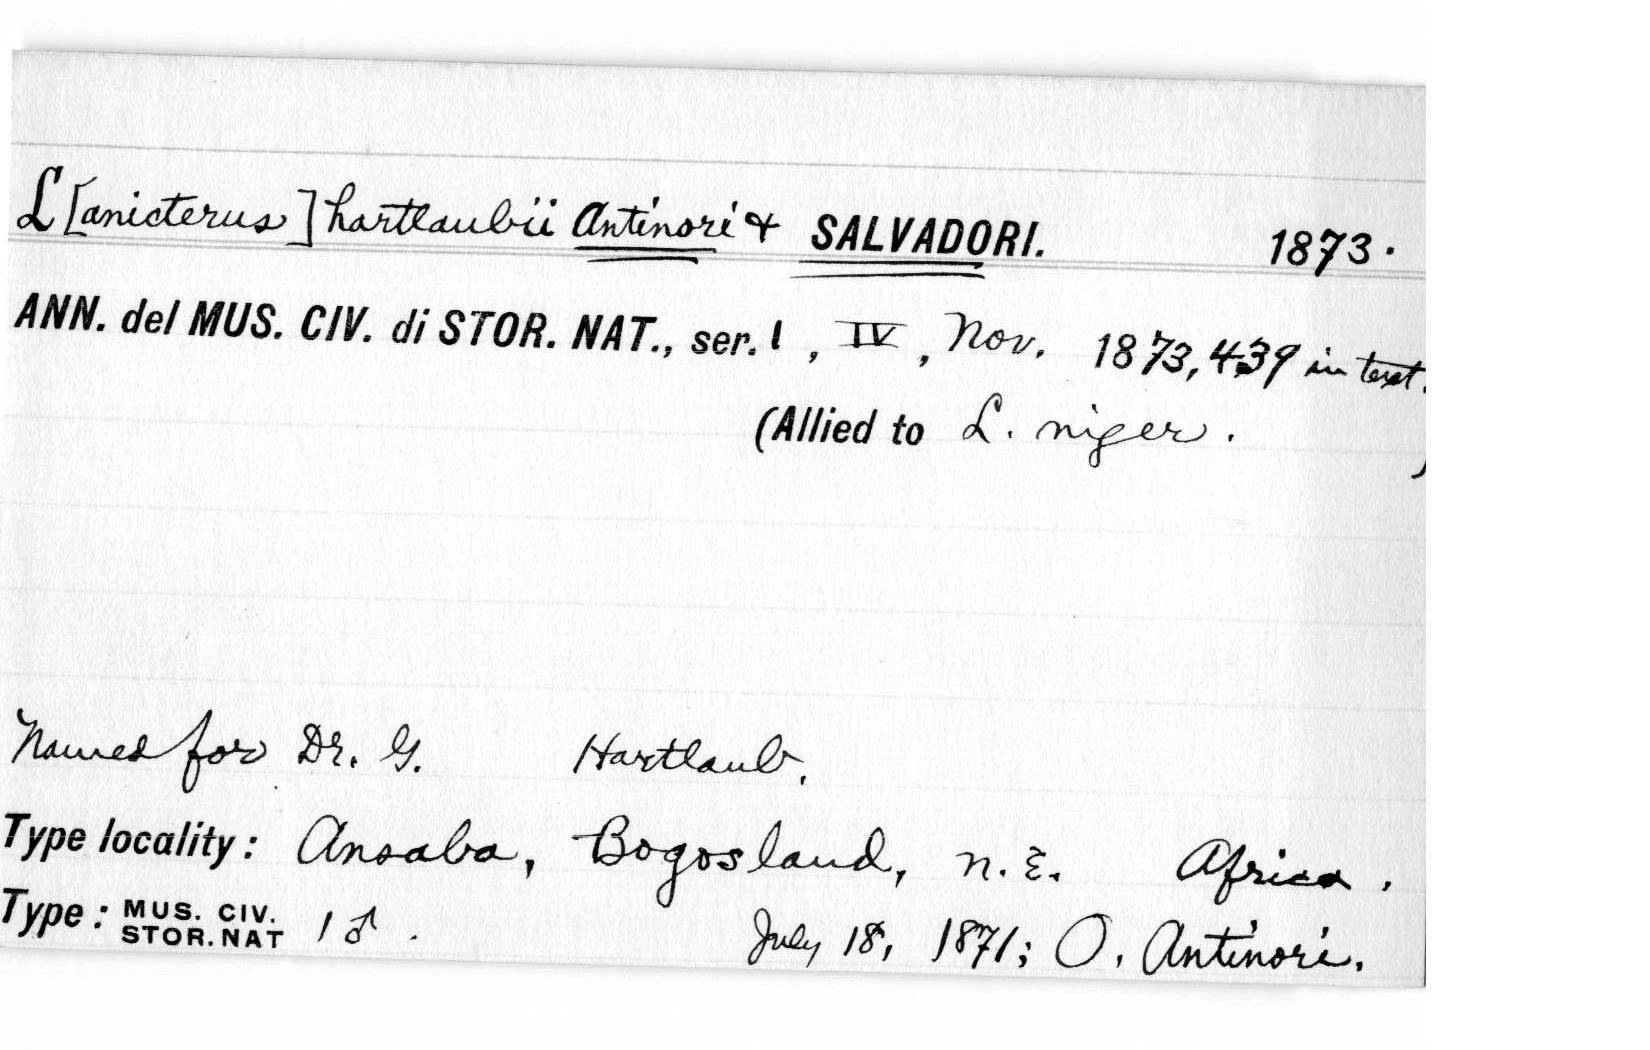 L[anicterus] hartlaubii Antinori & SALVADORI. 1873.
ANN. del MUS. CIV. di STOR. NAT., ser. 1, IV, Nov. 1873, 439 in text.
(Allied to L. niger. )
Named for Dr. G. Hartlaub.
Type locality: Ansaba, Bogosland, n.E. Africa.
Type: MUS. CIV. STOR. NAT 1♂. July 18, 1871; O. Antinori.